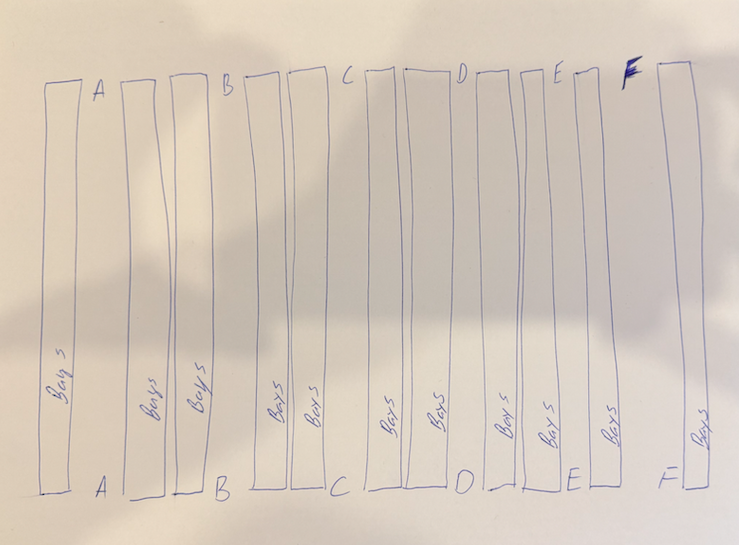 A B C D E F
Bays Bays Bays Bays Bays Bays Bays Bays Bays Bays Bays
A B C D E F